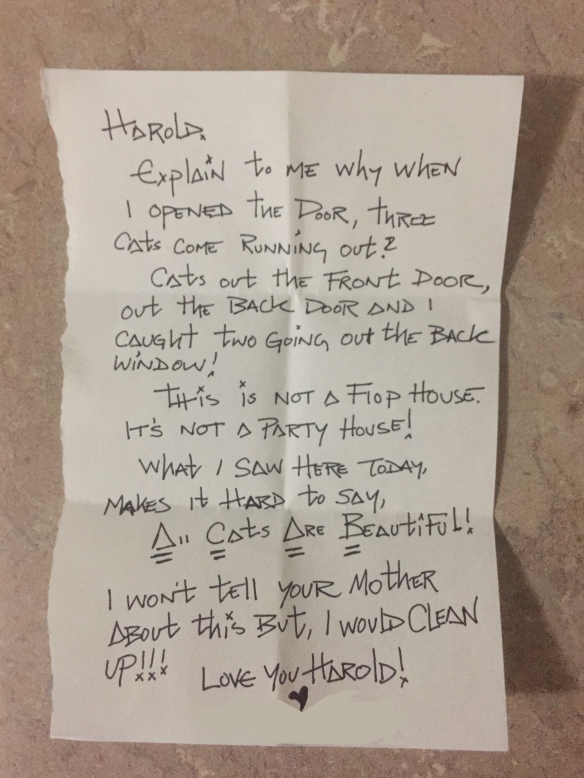 Harold,
Explain to me why when
I opened the door, three
cats come running out?
Cats out the front door,
out the back door and I
caught two going out the back
window!
This is not a flop house.
It's not a party house!
What I saw here today,
makes it hard to say,
All Cats Are Beautiful!
I won't tell your mother
about this but, I would clean
up!!! Love you Harold!